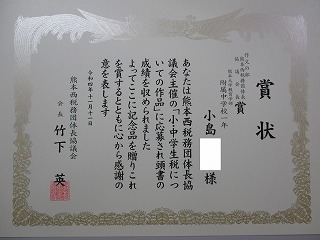 賞状
作文の部
熊本西税務団体長
協議会会長賞
熊本大学教育学部
附属中学校一年
小島
様
あなたは熊本西税務団体長協
議会主催の「小・中学生税につ
いての作品」に応募され頭書の
成績を収められました
よってここに記念品を贈りこれ
を賞するとともに心から感謝の
意を表します
令和四年十一月十一日
熊本西税務団体長協議会
会長 竹下 英